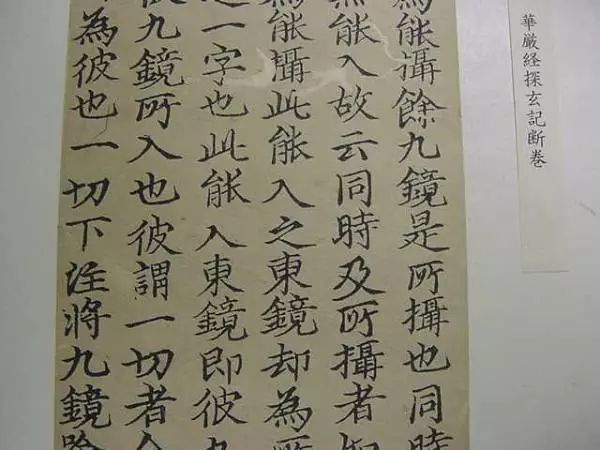 華厳経探玄記断巻
為能攝餘九鏡是所攝也同時
能入故云同時及所攝者
為能攝此能入之東鏡却為所
一字也此能入東鏡即彼九
九鏡所入也彼謂一切者
為彼也一切下注將九鏡